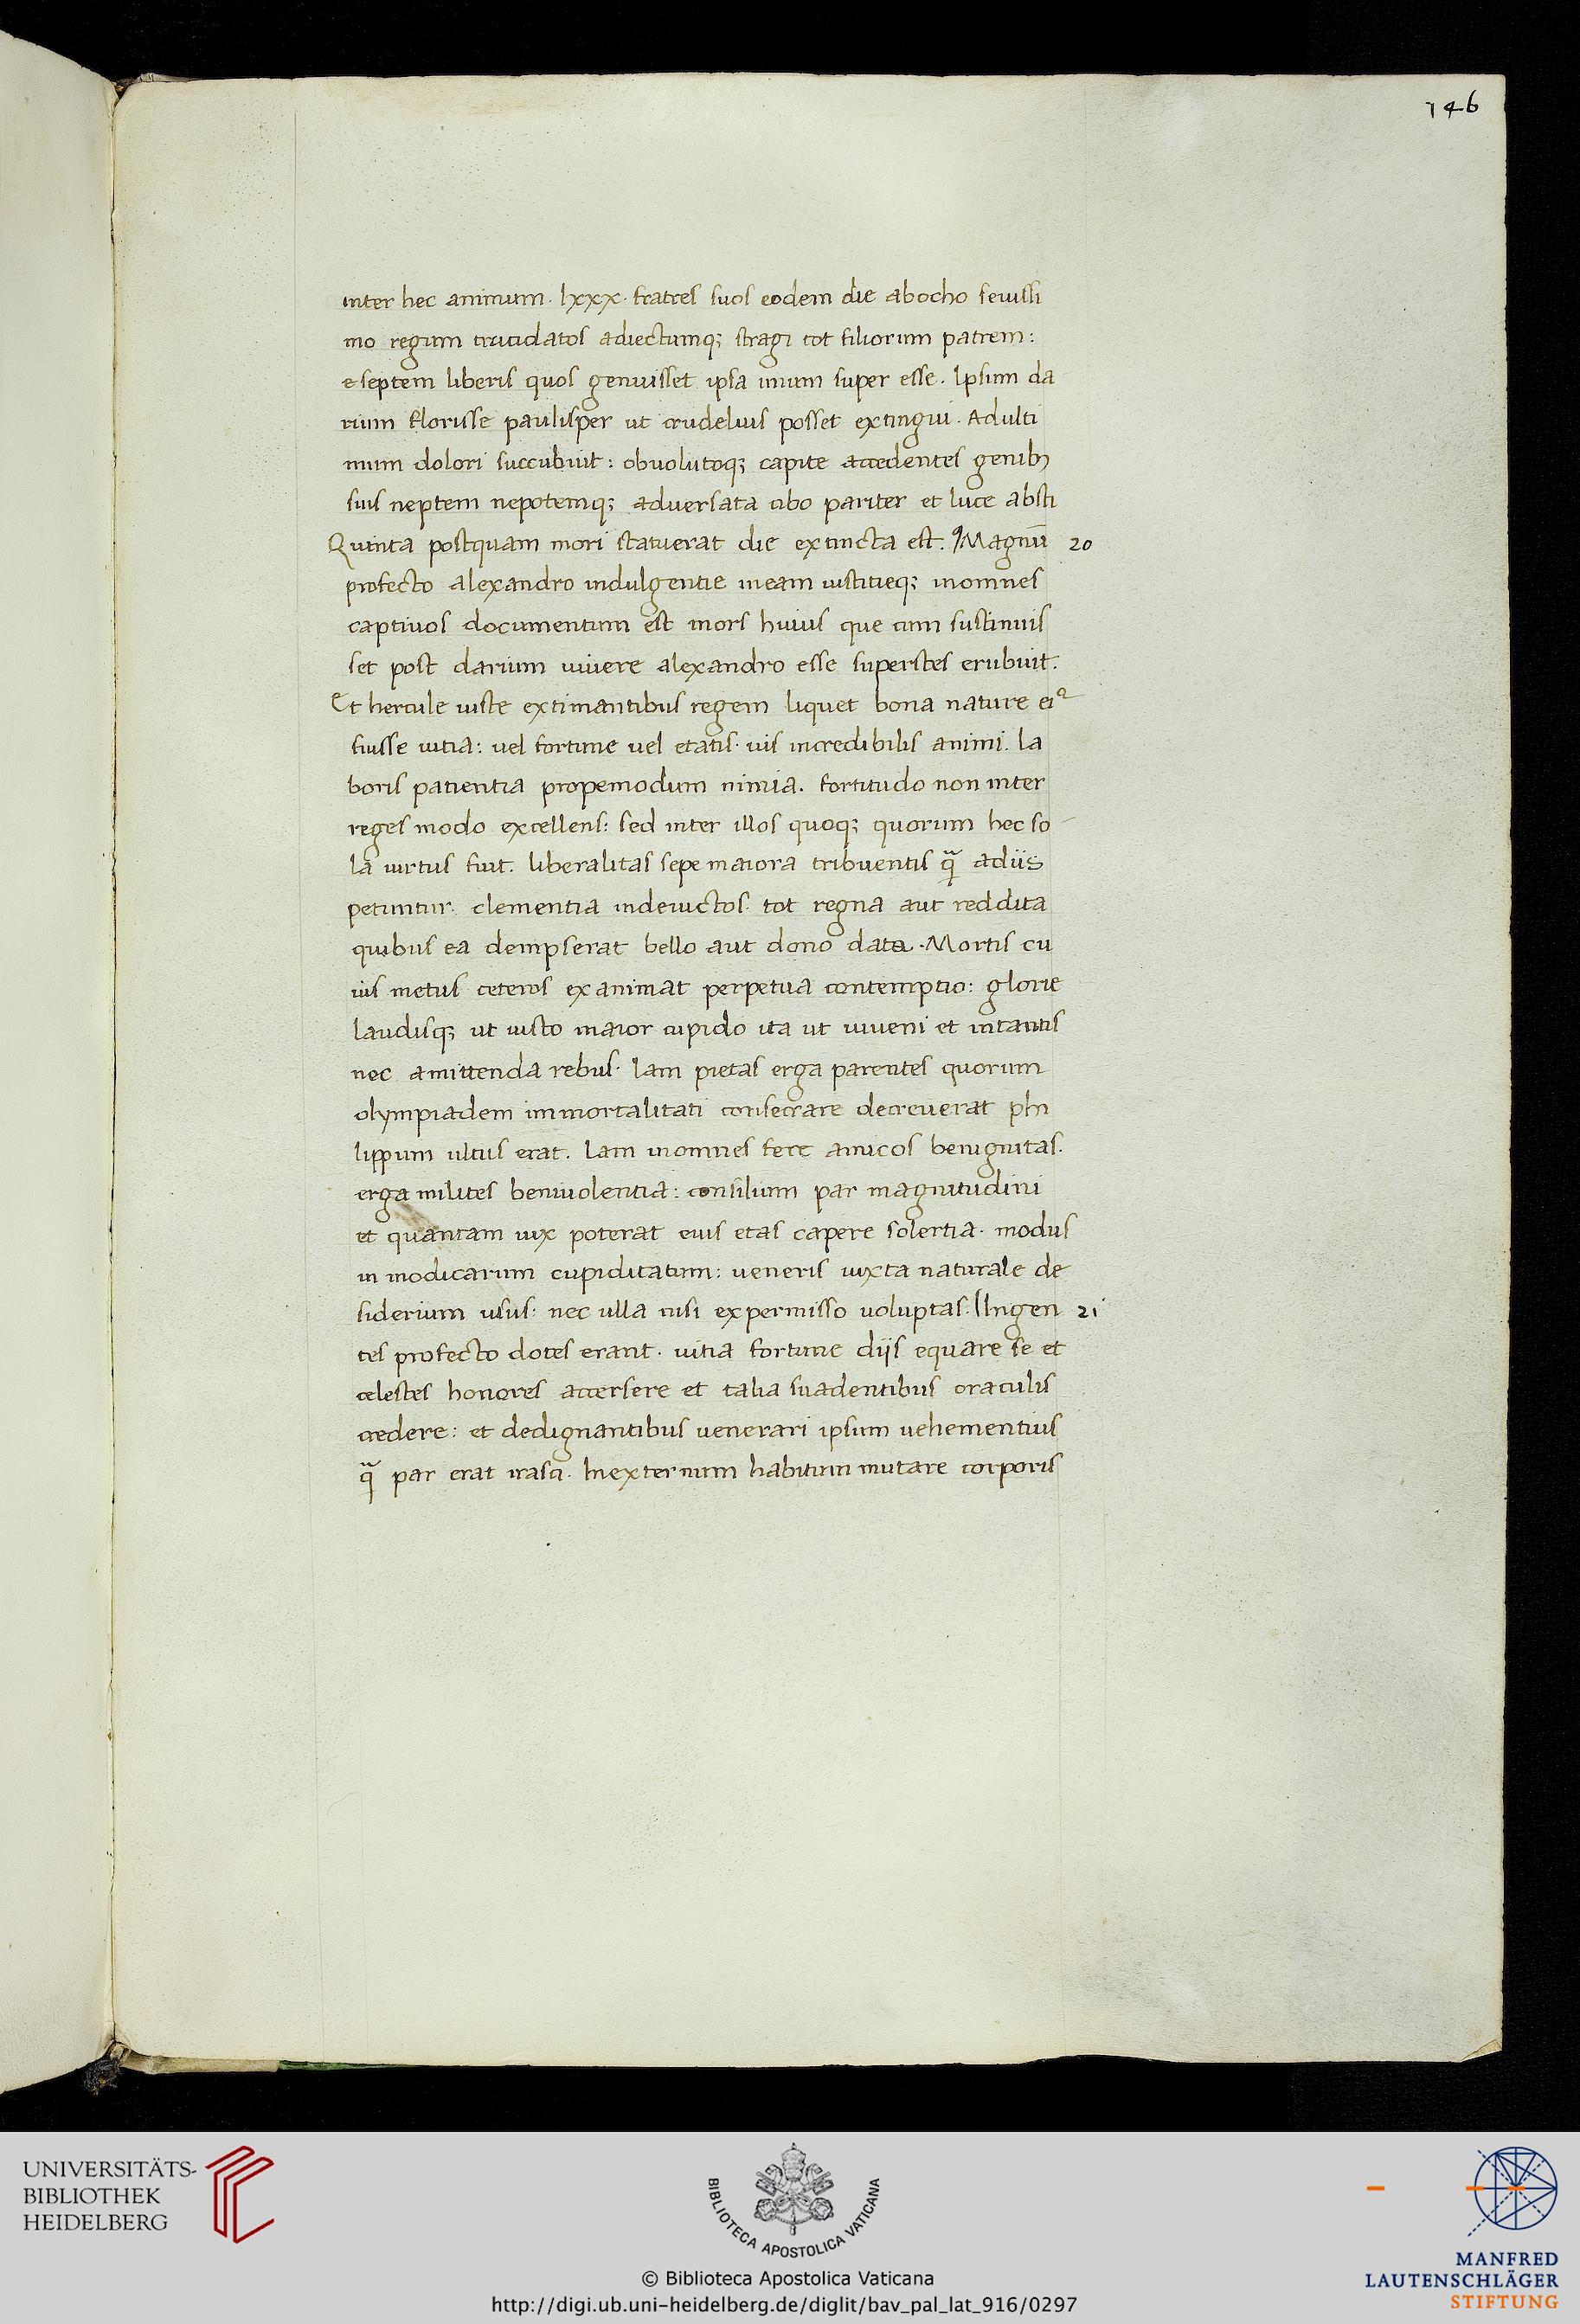 146
inter hec animum. lxxx. fratres suos eodem die abocho seuissi
mo regum trucidatos adiectumq; stragi tot filiorum patrem:
e septem liberis quos genuisset ipsa unum super esse. Ipsum da
rium floruisse paulisper ut crudelius posset extingui. Adulti
mum dolori succubuit: obuolutoq; capite accedentes genibꝫ
suis neptem nepotemq; aduersata cibo pariter et luce absti
Quinta postquam mori statuerat die extincta est. Magnū 20
profecto alexandro indulgentie ineam iustitieq; inomnes
captiuos documentum est mors huius que cum sustinuis
set post darium uiuere alexandro esse superstes erubuit.
Et hercule iuste extimantibus regem liquet bona nature eiꝰ
fuisse uitia: uel fortune uel etatis. uis incredibilis animi. la
boris patientia propemodum nimia. fortitudo non inter
reges modo excellens: sed inter illos quoq; quorum hec so
la uirtus fuit. liberalitas sepe maiora tribuentis q̄ adiis
petuntur. clementia indeuictos. tot regna aut reddita
quibus ea dempserat bello aut dono data. Mortis cu
ius metus ceteros exanimat perpetua contemptio: glorie
laudisq; ut iusto maior cupido ita ut iuueni et intantis
nec amittenda rebus. Iam pietas erga parentes quorum
olympiadem immortalitati consecrare decreuerat phi
lippum ultus erat. Iam inomnes fere amicos benignitas.
erga milites beniuolentia: consilium par magnitudini
et quantam uix poterat eius etas capere solertia. modus
in modicarum cupiditatum: ueneris iuxta naturale de
siderium usus: nec ulla nisi expermisso uoluptas. Ingen 21
tes profecto dotes erant. uitia fortune diis equare se et
celestes honores accersere et talia suadentibus oraculis
credere: et dedignantibus uenerari ipsum uehementius
q̄ par erat irasci. Inexternum habitum mutare corporis
UNIVERSITÄTS-
BIBLIOTHEK
HEIDELBERG
BIBLIOTECA APOSTOLICA VATICANA
© Biblioteca Apostolica Vaticana
http://digi.ub.uni-heidelberg.de/diglit/bav_pal_lat_916/0297
MANFRED
LAUTENSCHLÄGER
STIFTUNG